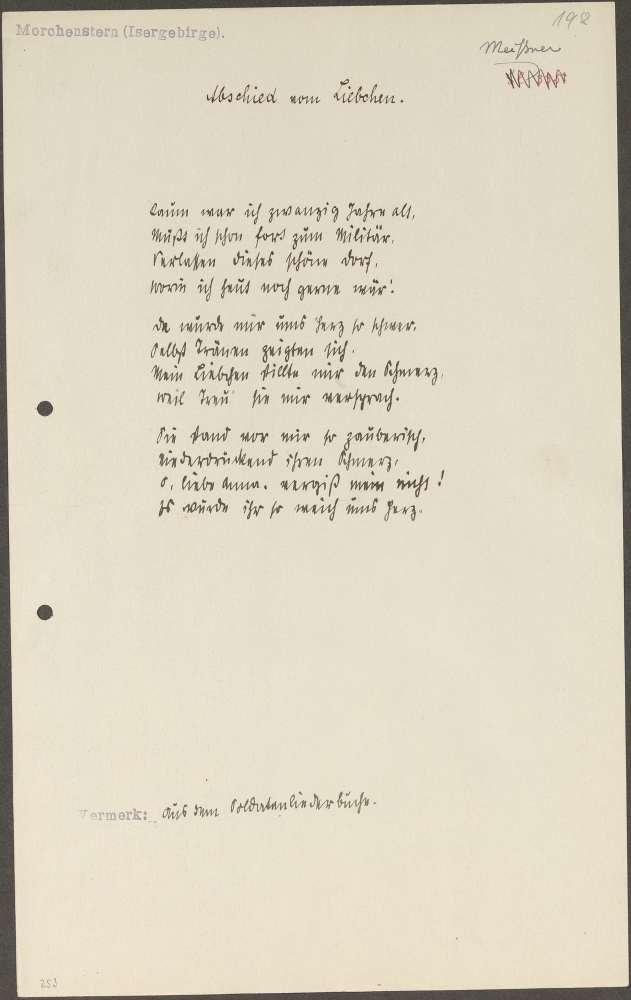 Morchenstern (Isergebirge).
198
Meißner
Abschied vom Liebchen.
Kaum war ich zwanzig Jahre alt,
Mußt ich schon fort zum Militär,
Verlassen dieses schöne Dorf,
worin ich heut noch gerne wär'.
Da wurde mir ums Herz so schwer,
Selbst Tränen zeigten sich.
Mein Liebchen stillte mir den Schmerz,
weil Treu' sie mir versprach.
Sie stand vor mir so zauberisch,
niederdrückend ihren Schmerz,
O, liebe Anna, vergiß mein nicht!
Es wurde ihr so weich ums Herz.
Vermerk: Aus dem Soldatenliederbuche.
253